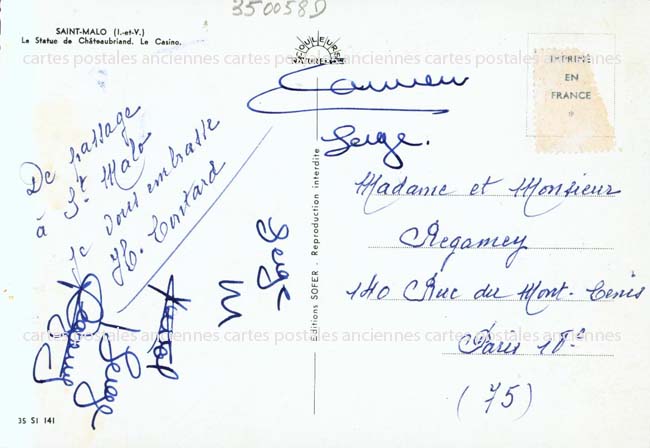 350058D
SAINT-MALO (I.-et-V.)
La Statue de Châteaubriand. Le Casino.
COULEURS NATURELLES
IMPRIMÉ
EN
FRANCE
*
cartes postales anciennes cartes postales anciennes cartes postales anciennes cartes postales
De passage
à St Malo
je vous embrasse
H. Contard
Serge.
Serge
M
Serge
Editions SOFER - Reproduction interdite
Madame et Monsieur
Regamey
140 Rue du Mont-Cenis
Paris 18e
(75)
cartes postales anciennes cartes postales anciennes cartes postales anciennes cartes postales
35 SI 141